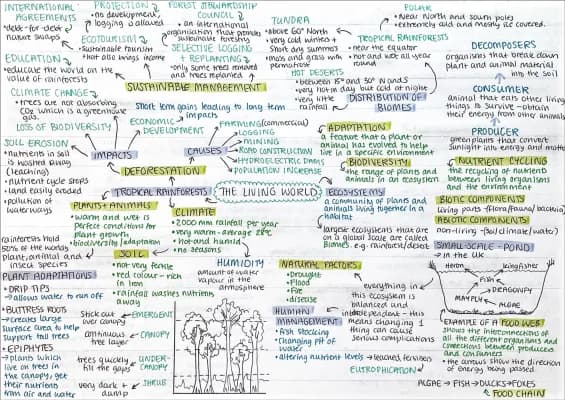 INTERNATIONAL
AGREEMENTS
• debt-for-debt
nature swaps
PROTECTION
• no development,
logging is allowed
FOREST STEWARDSHIP
COUNCIL
• an international
organisation that promotes
sustainable forestry
ECOTOURISM
• sustainable tourism
that also brings income
SELECTIVE LOGGING
+ REPLANTING
• only some trees removed
and trees replanted
EDUCATION
• educate the world on the
value of rainforests
SUSTAINABLE MANAGEMENT
TUNDRA
• above 60° North
• very cold winters +
short dry summers
• moss and grass with
permafrost
POLAR
• Near North and south poles
• extremely cold and mostly ice covered.
TROPICAL RAINFORESTS
• near the equator
• hot and wet all year
round
HOT DESERTS
• between 15° and 30° N and S
• very hot in day but cold at night
• very little
rainfall
DISTRIBUTION OF
BIOMES
DECOMPOSERS
organisms that break down
plant and animal material
into the soil
CONSUMER
animal that eats other living
things to survive – obtain
their energy from other animals
PRODUCER
green plants that convert
sunlight into energy and matter
CLIMATE CHANGE
• trees are not absorbing
CO₂ which is a greenhouse
gas.
LOSS OF BIODIVERSITY
Short term gains leading to long term
impacts
ECONOMIC
DEVELOPMENT
SOIL EROSION
• nutrients in soil
is washed away
(leaching)
• nutrient cycle stops
• land easily eroded
• pollution of
waterways
IMPACTS
CAUSES
FARMING (commercial)
LOGGING
MINING
ROAD CONSTRUCTION
HYDROELECTRIC DAMS
POPULATION INCREASE
DEFORESTATION
TROPICAL RAINFORESTS
THE LIVING WORLD
ADAPTATION
a feature that a plant or
animal has evolved to help
live in a specific environment
BIODIVERSITY
the range of plants and
animals in an ecosystem
ECOSYSTEMS
a community of plants and
animals living together in a
habitat
largest ecosystems that are
on a global scale are called
Biomes e.g. rainforest/desert
NUTRIENT CYCLING
the recycling of nutrients
between living organisms
and the environment
BIOTIC COMPONENTS
living parts - (flora/fauna/bacteria)
ABIOTIC COMPONENTS
non-living - (soil/climate/water)
SMALL-SCALE - POND
in the UK
PLANTS + ANIMALS
• warm and wet is
perfect conditions for
plant growth
• biodiversity/adaptation
CLIMATE
• 2000 mm rainfall per year
• very warm - average 28°C
• hot and humid
• no seasons
rainforests hold
50% of the worlds
plant, animal and
insect species
SOIL
• not very fertile
• red colour - rich
in iron
• rainfall washes nutrients
away
HUMIDITY
amount of water
vapour in the
atmosphere
PLANT ADAPTATIONS
• DRIP TIPS
→ allows water to run off
• BUTTRESS ROOTS
→ creates large
surface area to help
support tall trees
• EPIPHYTES
→ plants which
live on trees in
the canopy, get
their nutrients
from air and water
Stick out
over canopy
EMERGENT
continuous
tree layer
CANOPY
trees quickly
fill the
gaps
UNDER-
CANOPY
very dark +
damp
SHRUB
NATURAL FACTORS
• Drought
• Flood
• Fire
• disease
HUMAN
MANAGEMENT
• Fish stocking
• Changing pH of
water
• altering nutrient levels → leached fertilisers
EUTROPHICATION
everything in
this ecosystem is
balanced and
interdependent - this
means changing 1
thing can cause
serious complications
Heron
kingfisher
FISH
DRAGONFLY
MAYFLY
ALGAE
EXAMPLE OF A FOOD WEB
shows the interconnection of
all the different organisms and
connections between producers
and consumers
→ the arrows show the direction
of energy being passed
ALGAE → FISH → DUCKS → FOXES
FOOD CHAIN